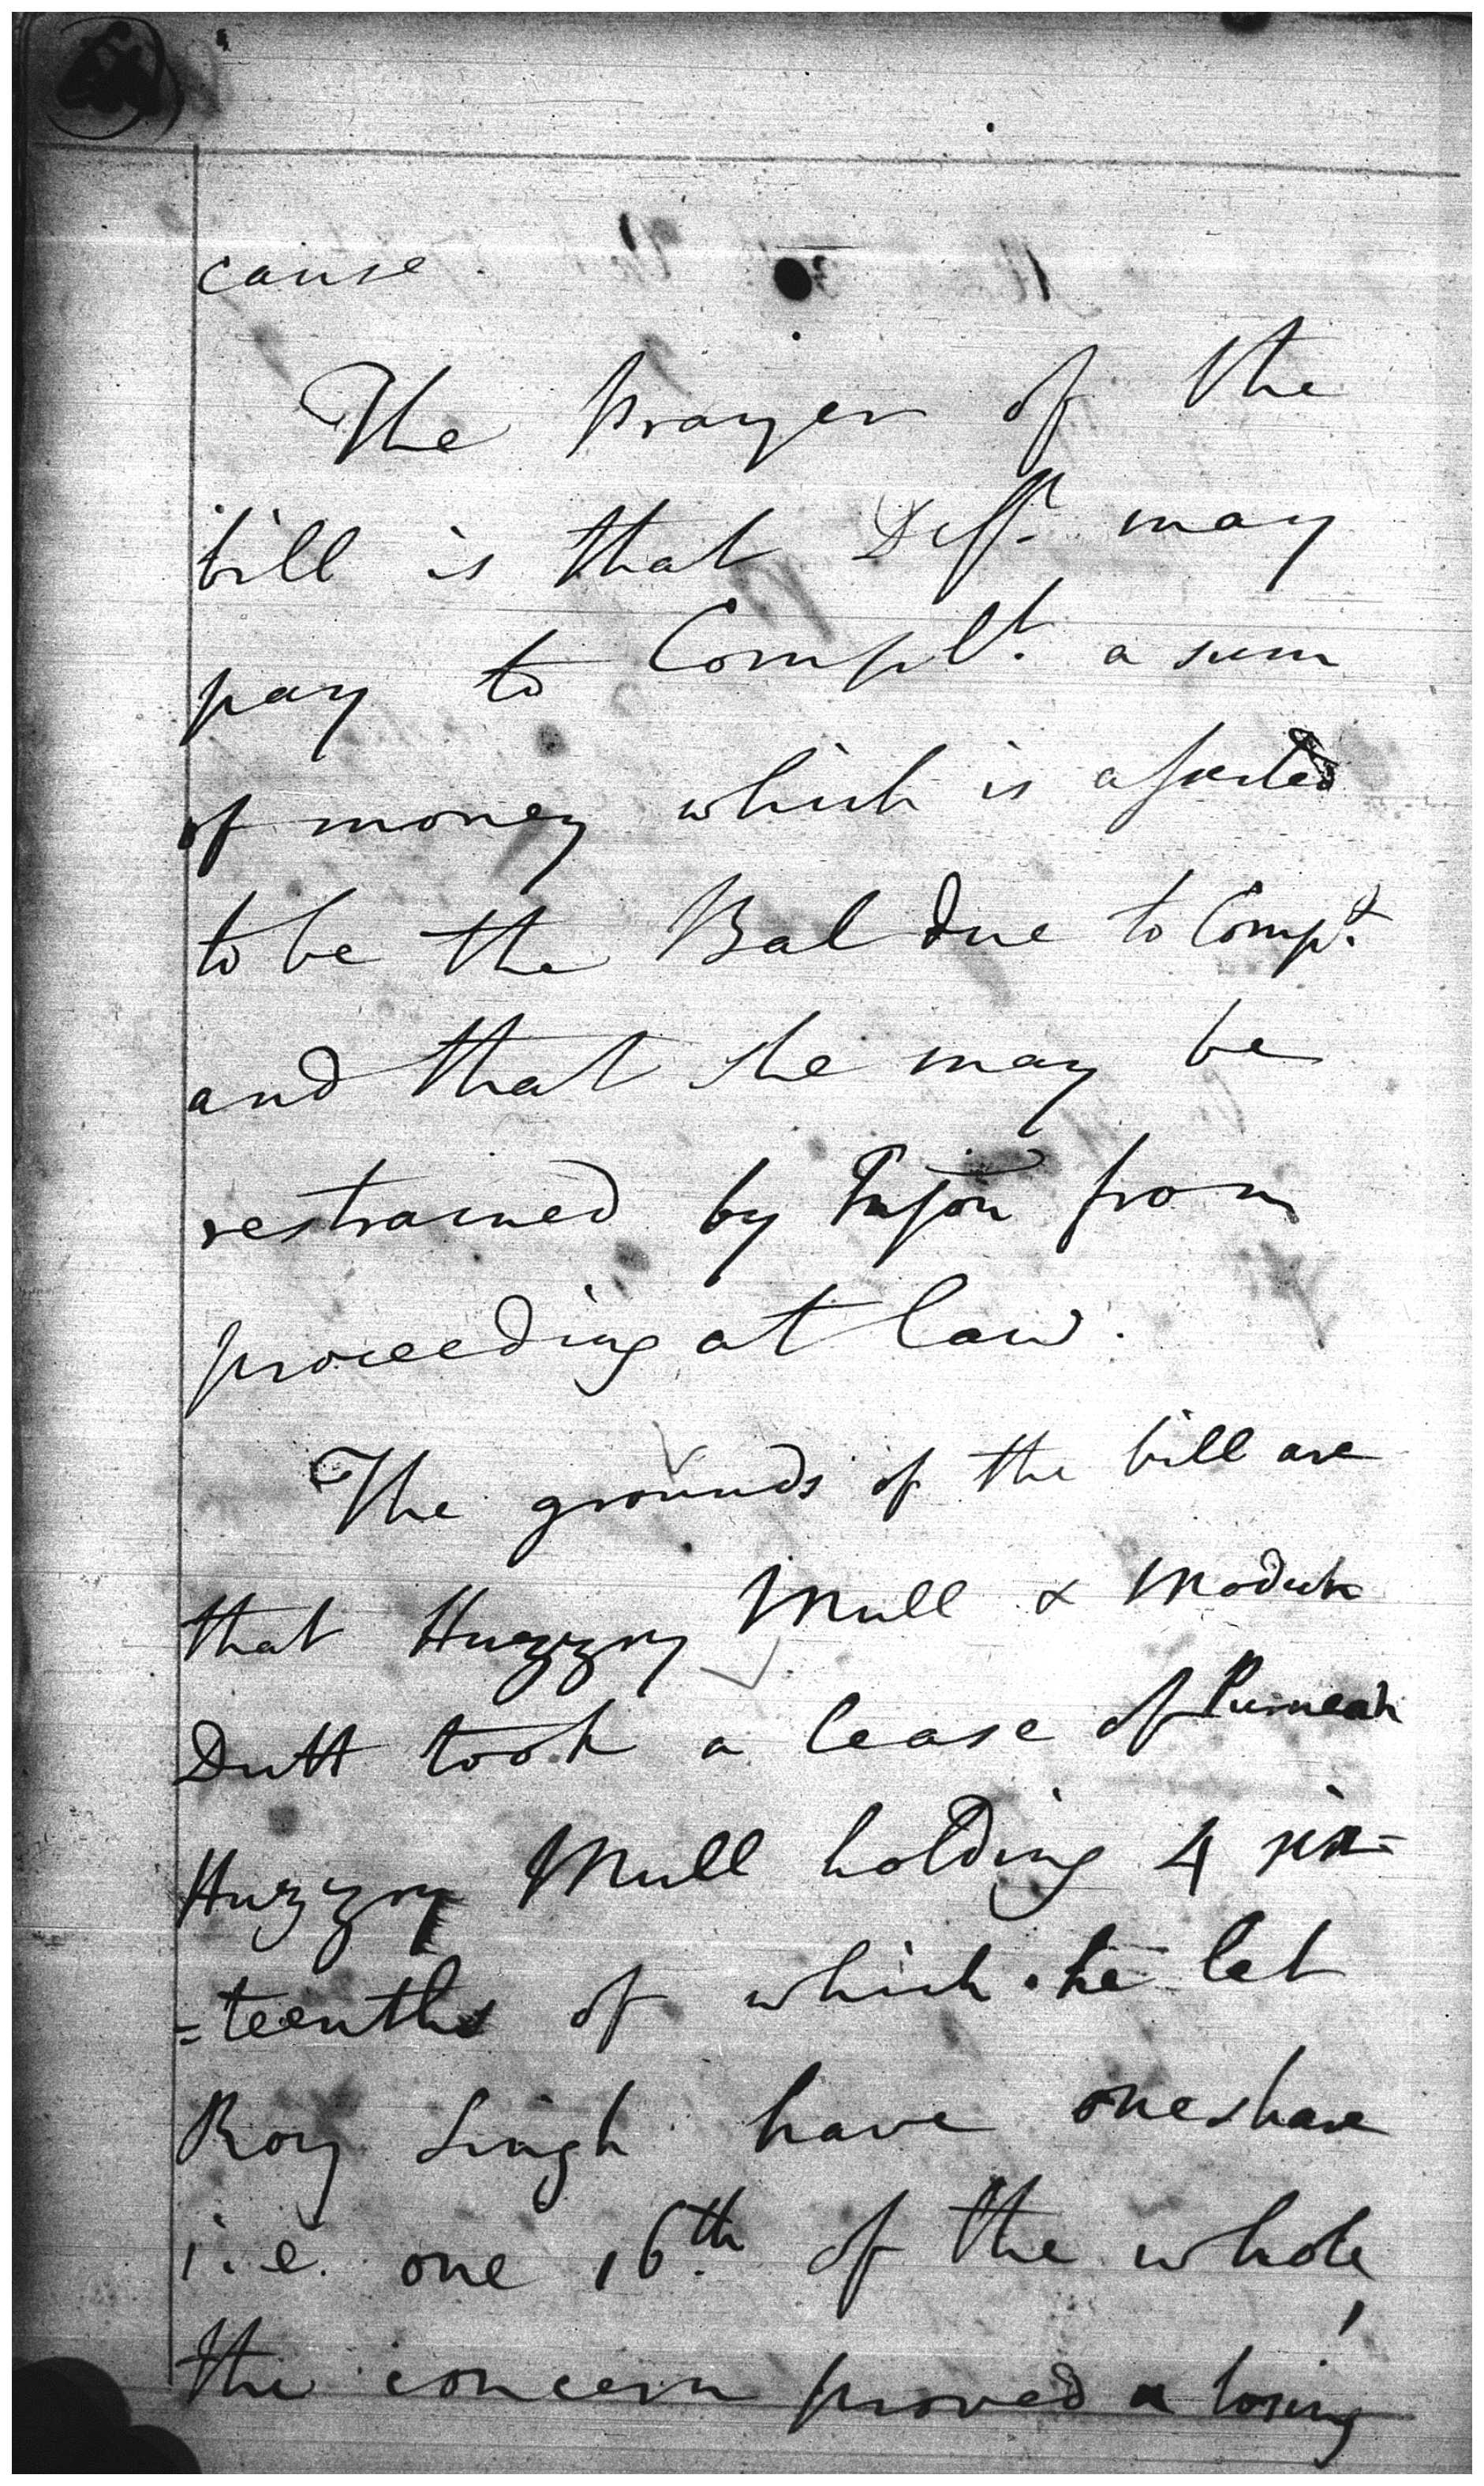 cause.
The Prayer of the
bill is that Deft. may
pay to Complt. a sum
of money which is asserted
to be the Bal due to Compt.
and that she may be
restrained by Injon from
proceeding at law.
The grounds of the bill are
that Huzzry Mull & Moduk
Dutt took a lease of Purneah
Huzzry Mull holding 4 six=
=teenths of which he let
Roy Singh have one share
i.e. one 16th. of the whole,
the concern proved a losing